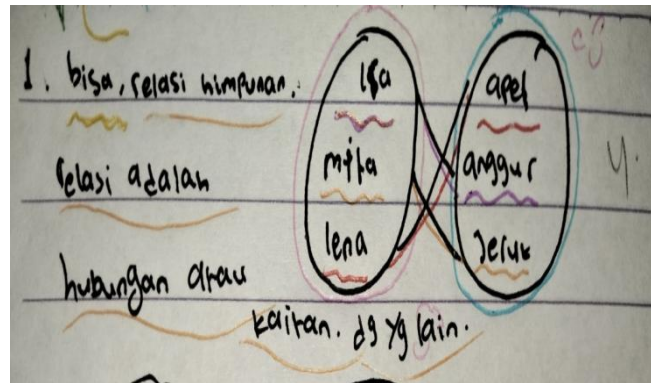 1. bisa, relasi himpunan.
relasi adalah
hubungan atau
kaitan. dg yg lain.
Isa
mita
lena
apel
anggur
Jeruk